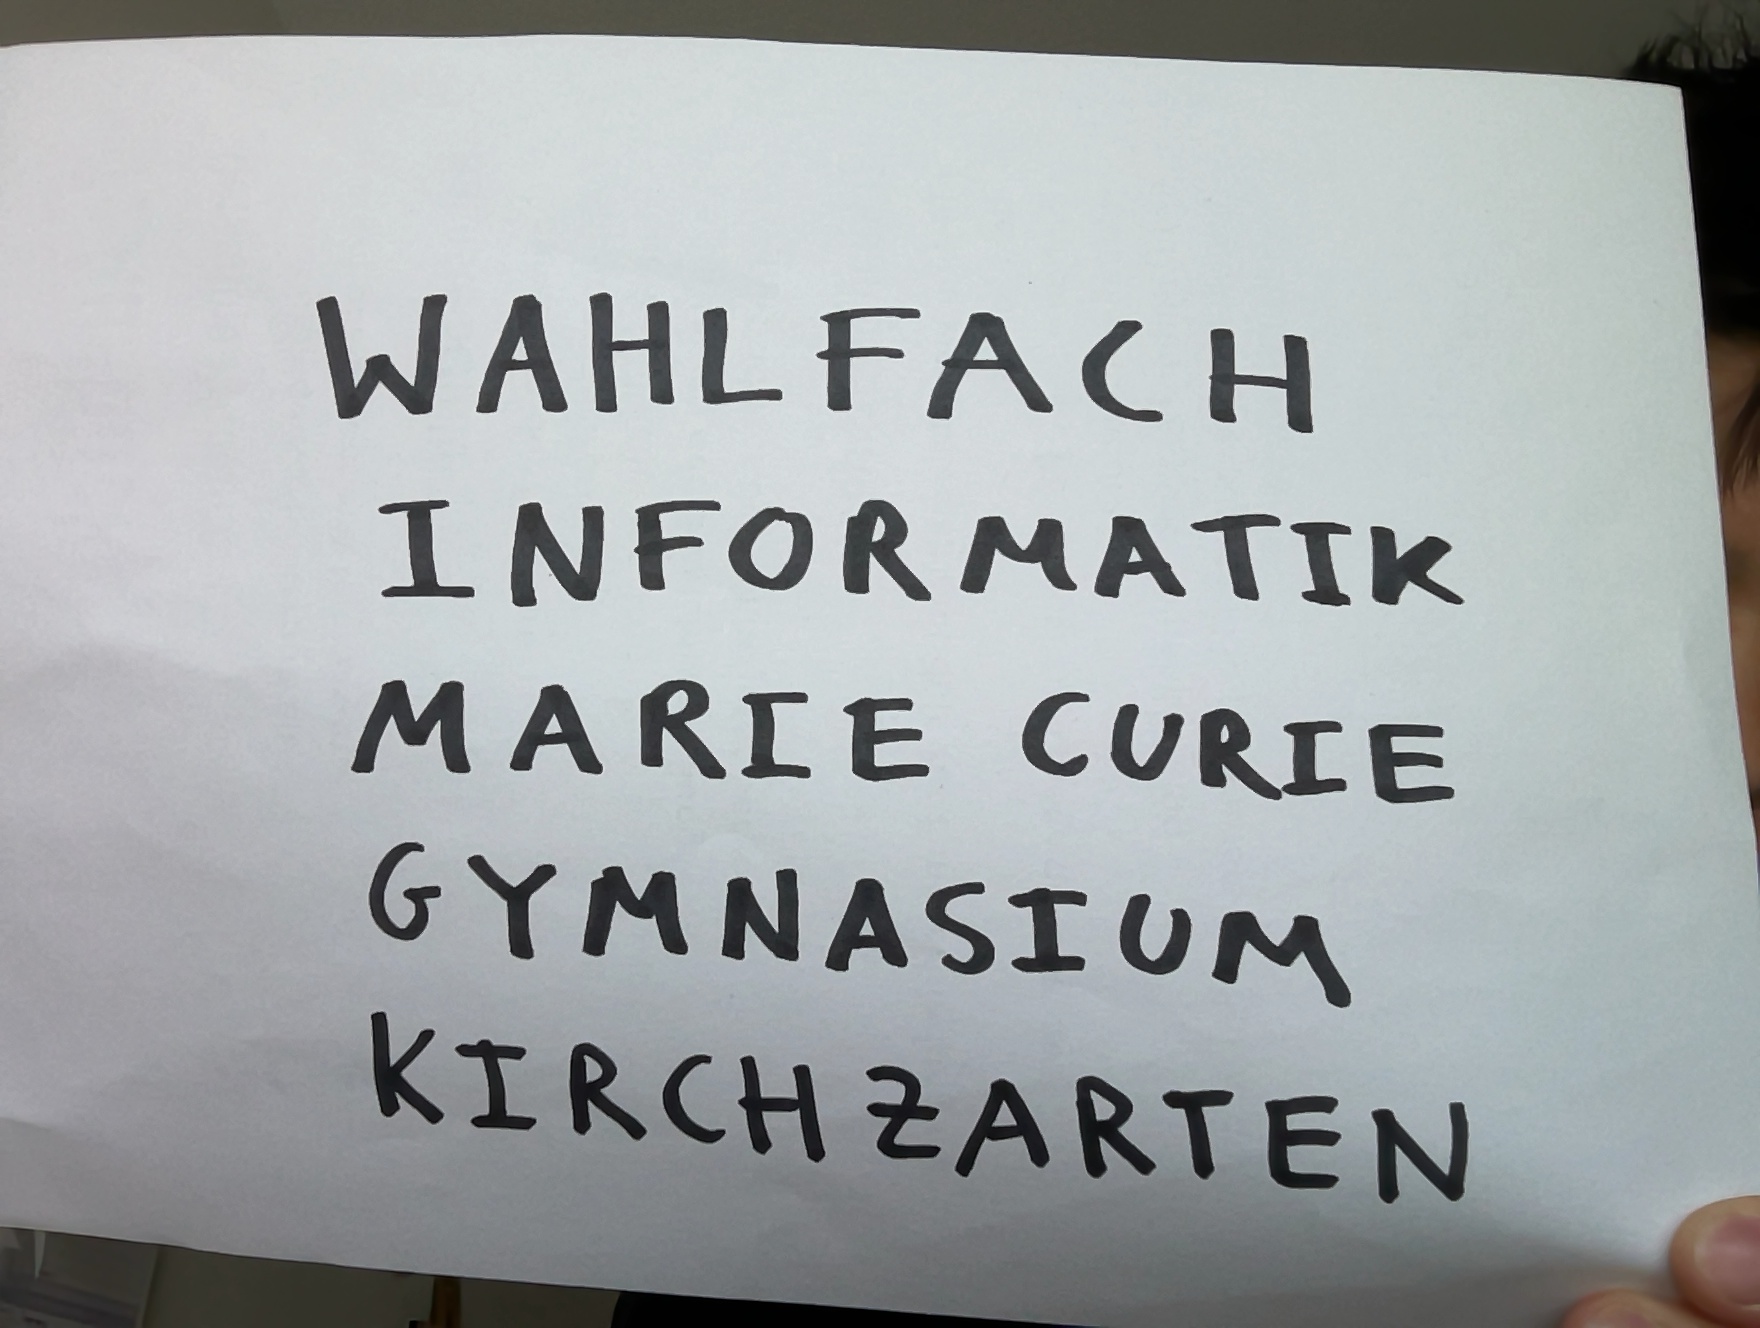 WAHLFACH
INFORMATIK
MARIE CURIE
GYMNASIUM
KIRCHZARTEN